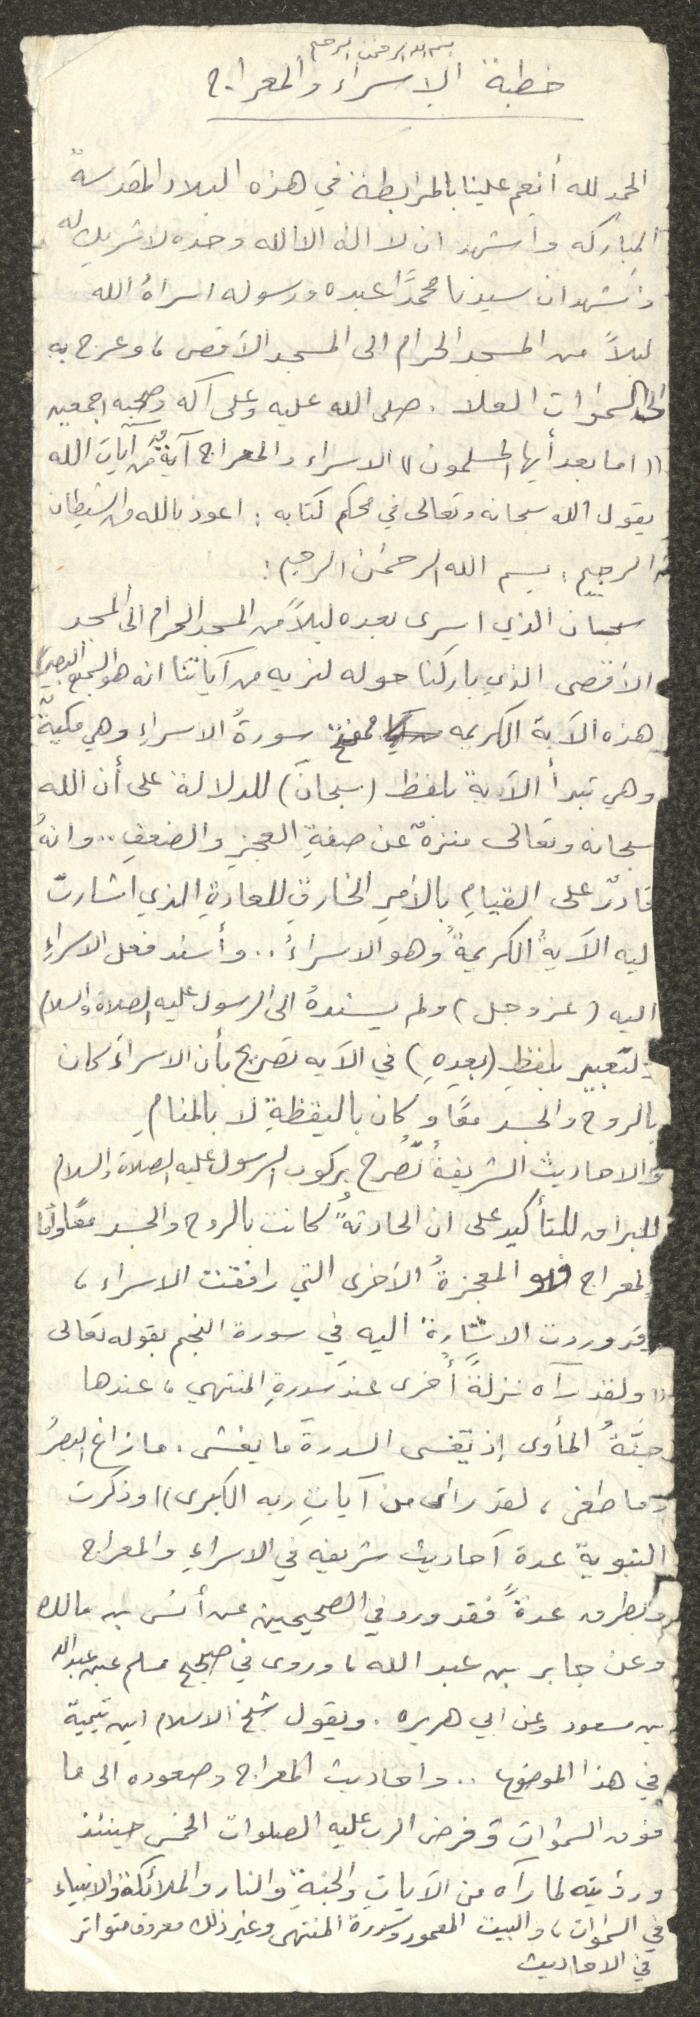 بسم الله الرحمن الرحيم
خطبة الاسراء والمعراج
الحمد لله أنعم علينا بالمرابطة في هذه البلاد المقدسة
المباركه وأشهد ان لا اله الا الله وحده لا شريك له
وأشهد ان سيدنا محمدًا عبده ورسوله اسراهُ الله
ليلاً من المسجد الحرام الى المسجد الأقصى، وعرج به
الى السموات العلا. صلى الله عليه وعلى آله وصحبه اجمعين
(( اما بعد أيها المسلمون )) الاسراء والمعراج آية من آيات الله
يقول الله سبحانه وتعالى في محكم كتابه: اعوذ بالله من الشيطان
الرجيم، بسم الله الرحمن الرحيم:
سبحان الذي اسرى بعبده ليلاً من المسجد الحرام الى المسجد
الأقصى الذي باركنا حوله لنريه من آياتنا انه هو السميع البصير))
هذه الآية الكريمه سورةُ الاسراءِ وهي مكيةٌ
وهي تبدأ الآية بلفظ (سبحانَ) للدلالة على أن الله
سبحانه وتعالى منزهٌ عن صفةِ العجزِ والضعفِ.. وانهُ
قادرٌ على القيامِ بالأمرِ الخارقِ للعادةِ الذي اشارت
ليه الآيةُ الكريمةُ وهو الاسراءُ.. وأسند فعل الاسراءِ
اليه (عز وجل) ولم يسندهُ الى الرسول عليه الصلاة والسلام
لتعبير بلفظِ (بعبدِهِ) في الآيه تصريح بأن الاسراءَ كان
بالروح والجسد معًا وكان باليقظةِ لا بالمنامِ
والاحاديث الشريفةُ تُصرح بركوب الرسول عليه الصلاة والسلام
للبراق للتأكيد على ان الحادثةَ كانت بالروح والجسد معًا وأما
لمعراج فهو المعجزةُ الأخرى التي رافقت الاسراء،
قد وردت الاشارة اليه في سورة النجم بقوله تعالى
(( ولقد رآه نزلةً أُخرى عند سدرةِ المنتهى، عندها
جنَّةُ المأوى إذ يَغشى السدرةَ ما يغشى. ما زاغ البصرُ
وما طغى، لقد رأى من آياتِ ربه الكبرى)) وذكرت
النبوية عدة أحاديث شريفه في الاسراءِ والمعراج
وبطرق عدةً فقد ورد في الصحيحين عن أنس بن مالك
وعن جابر بن عبد الله، وروى في صحيح مسلم عن عبدالله
بن مسعود وعن ابي هريره. ويقول شيخ الاسلام ابن تيمية
في هذا الموضوع.. واحاديث المعراج وصعوده الى ما
فوق السموات وفرض الرب عليه الصلوات الخمس حينئذ
ورؤيته لما رآه من الآياتِ والجنةِ والنار والملائكة والانبياء
في السموات، والبيت المعمور وسدرة المنتهى وغير ذلك معروف متواتر
في الاحاديث